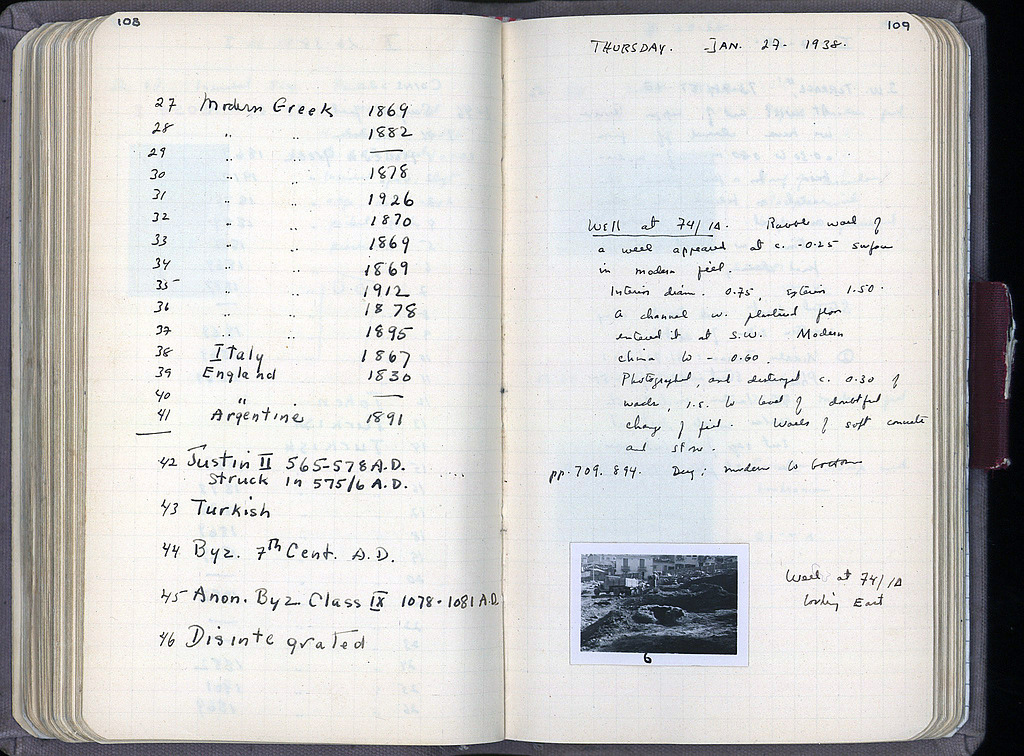 108
27 Modern Greek 1869
28 " " 1882
29 " " —
30 " " 1878
31 " " 1926
32 " " 1870
33 " " 1869
34 " " 1869
35 " " 1912
36 " " 1878
37 " " 1895
38 Italy 1867
39 England 1830
40 " —
41 Argentine 1891
42 Justin II 565-578 A.D.
Struck in 575/6 A.D.
43 Turkish
44 Byz. 7th Cent. A.D.
45 Anon. Byz. Class IX 1078-1081 A.D.
46 Disintegrated
109
THURSDAY. JAN. 27. 1938.
Well at 74/ΙΔ. Rubble wall of
a well appeared at c. -0.25 surface
in modern fill.
Interior diam. 0.75, Exterior 1.50.
A channel w. plastered floor
entered it at S.W. Modern
china to - 0.60.
Photographed, and destroyed c. 0.30 of
walls, i.e. to level of doubtful
change of fill. Walls of soft concrete
and stone.
pp. 709. 894. Dug: modern to bottom
Well at 74/ΙΔ
looking East
6